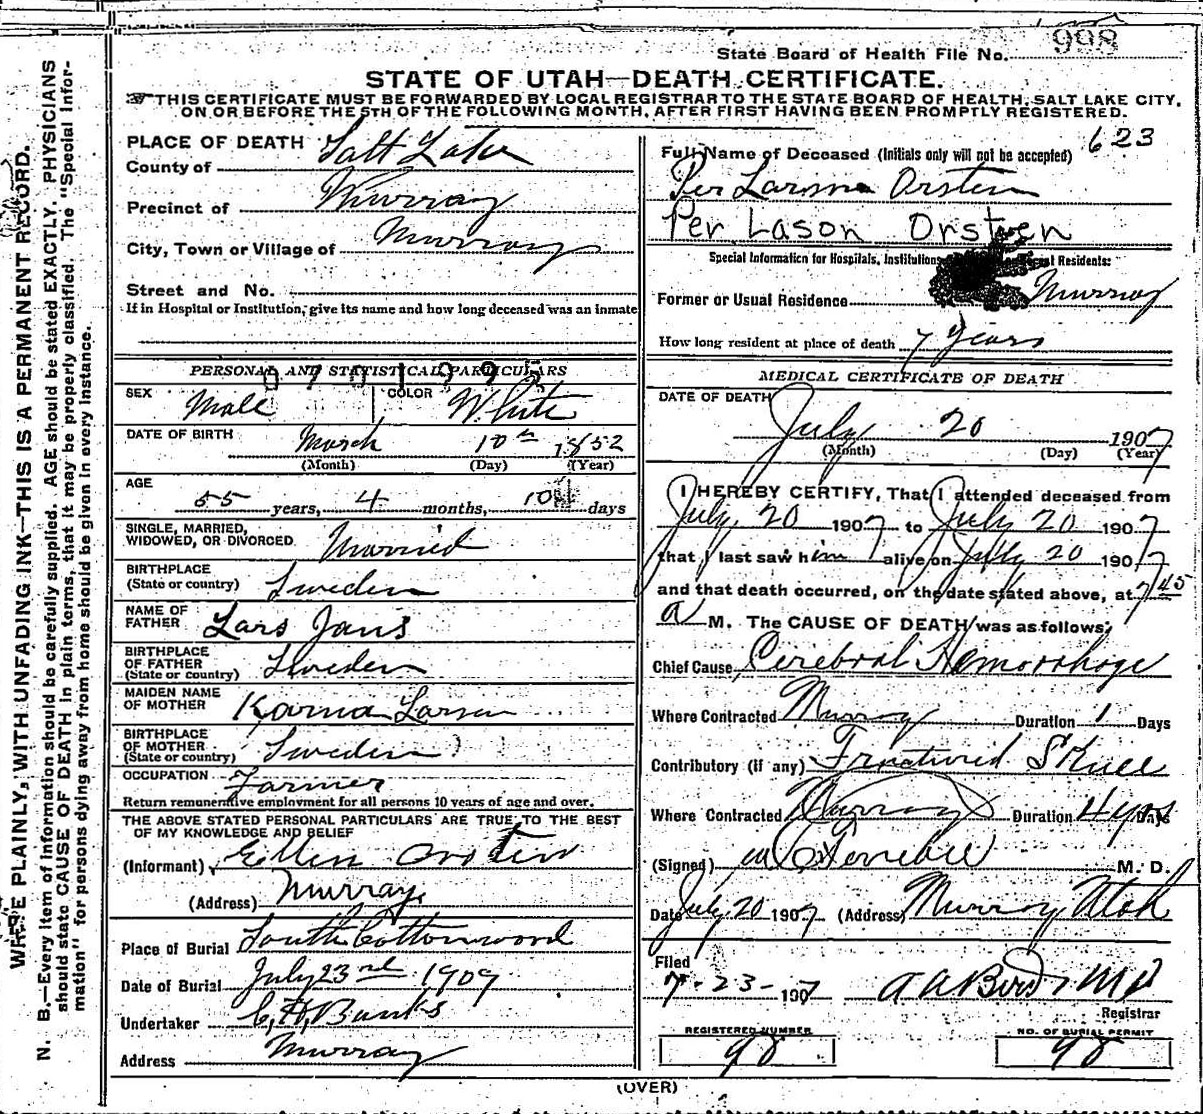 State Board of Health File No. 998
STATE OF UTAH—DEATH CERTIFICATE.
THIS CERTIFICATE MUST BE FORWARDED BY LOCAL REGISTRAR TO THE STATE BOARD OF HEALTH, SALT LAKE CITY,
ON OR BEFORE THE 5TH OF THE FOLLOWING MONTH, AFTER FIRST HAVING BEEN PROMPTLY REGISTERED.
WRITE PLAINLY, WITH UNFADING INK—THIS IS A PERMANENT RECORD.
N. B.—Every item of information should be carefully supplied. AGE should be stated EXACTLY. PHYSICIANS
should state CAUSE OF DEATH in plain terms, that it may be properly classified. The "Special Infor-
mation" for persons dying away from home should be given in every instance.
PLACE OF DEATH
County of Salt Lake
Precinct of Murray
City, Town or Village of Murray
Street and No.
If in Hospital or Institution, give its name and how long deceased was an inmate
PERSONAL AND STATISTICAL PARTICULARS
SEX Male COLOR White
DATE OF BIRTH March 10th 1852
(Month) (Day) (Year)
AGE
55 years, 4 months, 10 days
SINGLE, MARRIED,
WIDOWED, OR DIVORCED. Married
BIRTHPLACE
(State or country) Sweden
NAME OF
FATHER Lars Jans
BIRTHPLACE
OF FATHER
(State or country) Sweden
MAIDEN NAME
OF MOTHER Karna Larson
BIRTHPLACE
OF MOTHER
(State or country) Sweden
OCCUPATION Farmer
Return remunerative employment for all persons 10 years of age and over.
THE ABOVE STATED PERSONAL PARTICULARS ARE TRUE TO THE BEST
OF MY KNOWLEDGE AND BELIEF
(Informant) Ellen Orsten
(Address) Murray
Place of Burial South Cottonwood
Date of Burial July 23rd 1909
Undertaker C. H. Banks
Address Murray
623
Full Name of Deceased (Initials only will not be accepted)
Per Larson Orsten
Per Lason Orsten
Special Information for Hospitals, Institutions Residents:
Former or Usual Residence Murray
How long resident at place of death 7 years
MEDICAL CERTIFICATE OF DEATH
DATE OF DEATH
July 20 1907
(Month) (Day) (Year)
I HEREBY CERTIFY, That I attended deceased from
July 20 1907 to July 20 1907
that I last saw him alive on July 20 1907
and that death occurred, on the date stated above, at 7 45
a M. The CAUSE OF DEATH was as follows:
Chief Cause Cerebral Hemorrhage
Where Contracted Murray Duration 1 Days
Contributory (if any) Fractured
Where Contracted Murray Duration 4 yrs Days
(Signed) M. D.
Date July 20 1907 (Address) Murray Utah
Filed
7-23-1907 A A Bird MD
Registrar
REGISTERED NUMBER
98
NO. OF BURIAL PERMIT
98
(OVER)